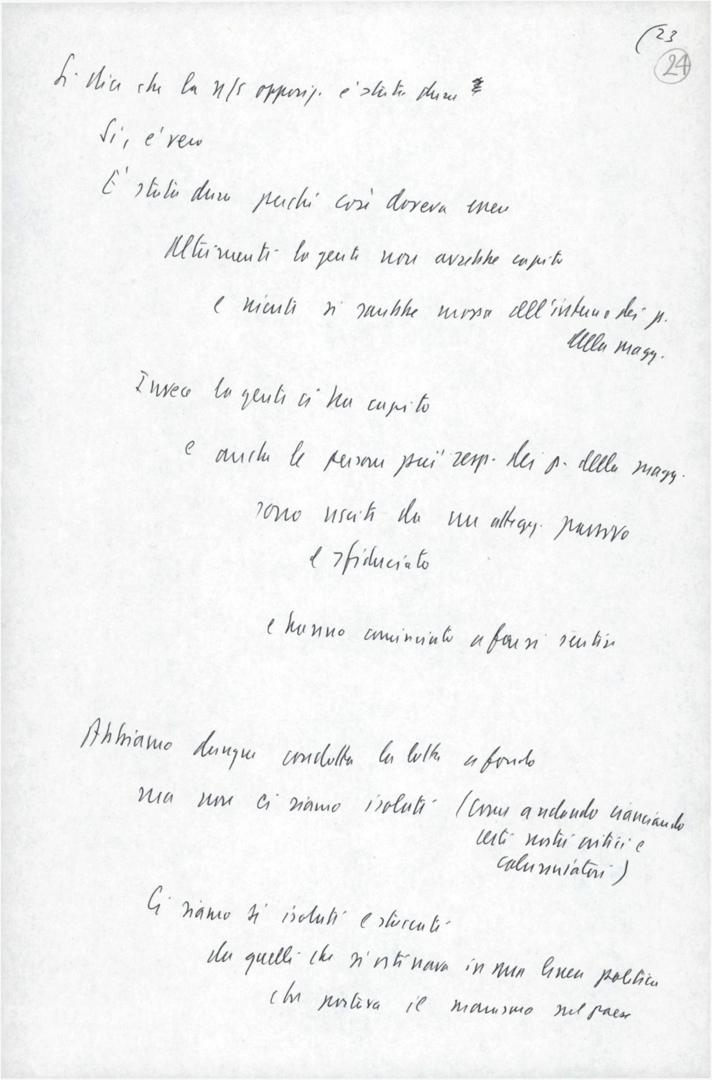 (23
24
Si dice che la n/s opposiz. è stata dura
Sì, è vero
È stata dura perché così doveva essere
Altrimenti la gente non avrebbe capito
e niente si sarebbe mosso all'interno dei p.
della magg.
Invece la gente ci ha capito
e anche le persone più resp. dei p. della magg.
sono uscite da un attegg. passivo
e sfiduciato
e hanno cominciato a farsi sentire
Abbiamo dunque condotto la lotta a fondo
ma non ci siamo isolati (come andando cianciando
certi nostri critici e
calunniatori)
Ci siamo sì isolati e staccati
da quelli che si ostinava in una linea politica
che portava il paese